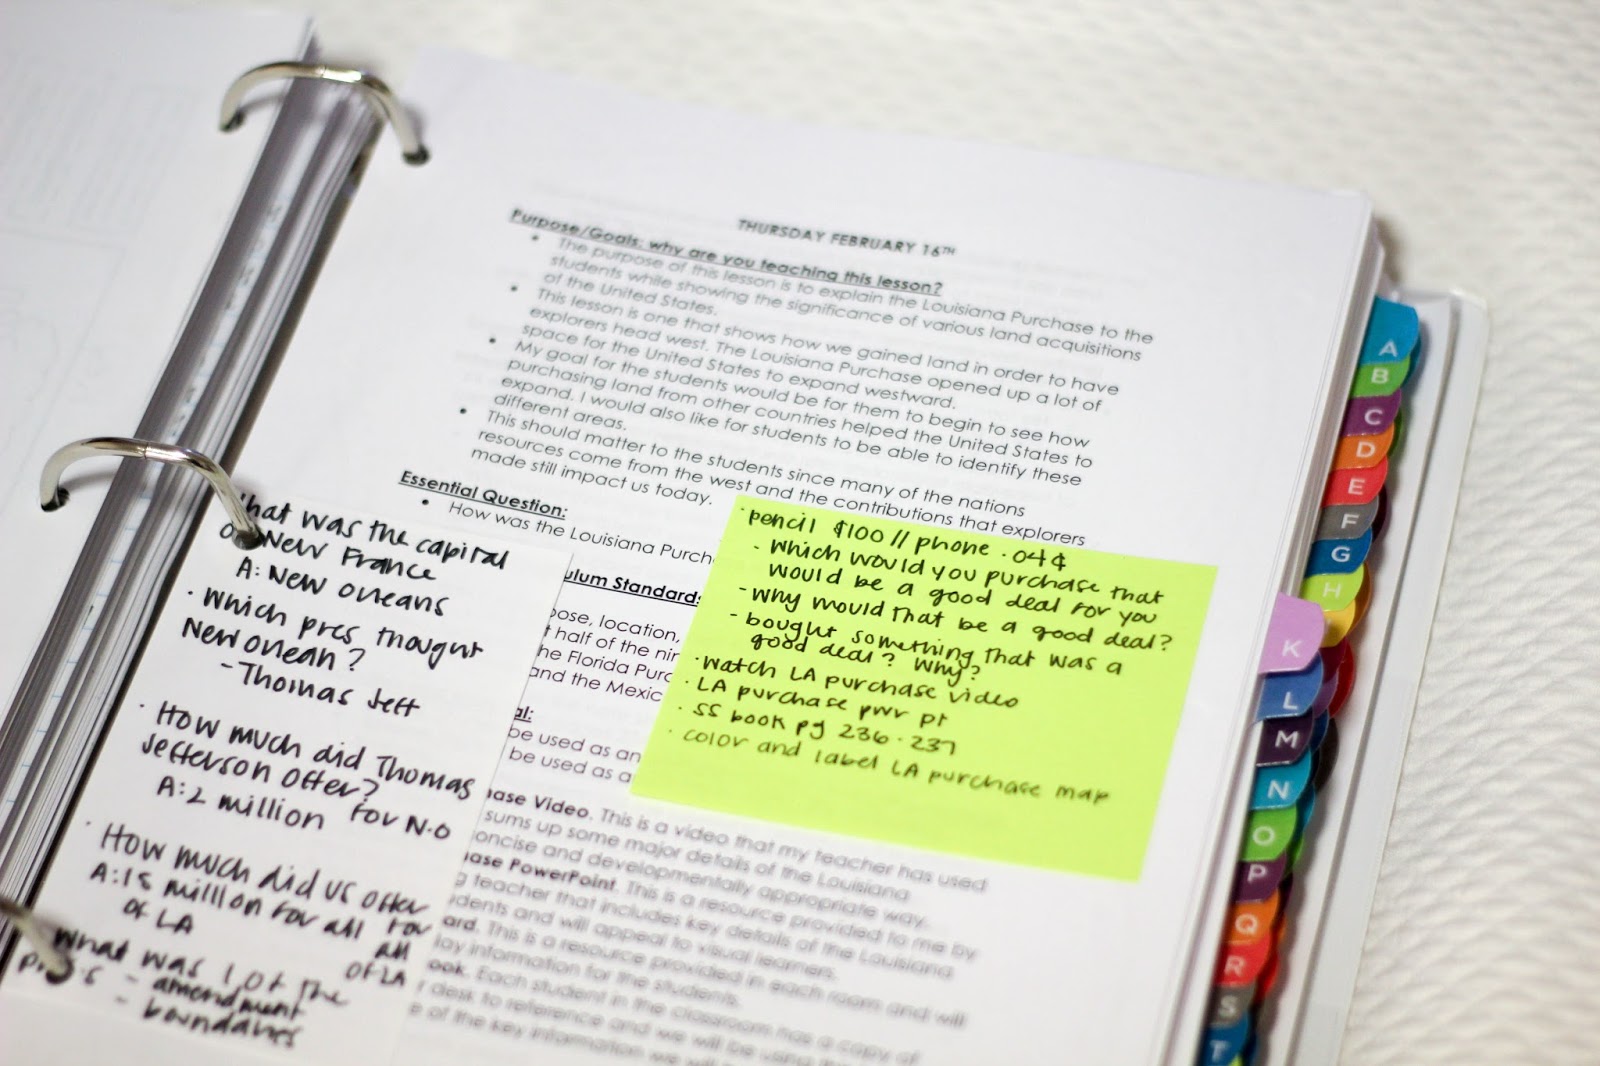 THURSDAY FEBRUARY 16TH
Purpose/Goals: why are you teaching this lesson?
• The purpose of this lesson is to explain the Louisiana Purchase to the
students while showing the significance of various land acquisitions
of the United States.
• This lesson is one that shows how we gained land in order to have
explorers head west. The Louisiana Purchase opened up a lot of
space for the United States to expand westward.
• My goal for the students would be for them to begin to see how
purchasing land from other countries helped the United States to
expand. I would also like for students to be able to identify these
different areas.
• This should matter to the students since many of the nations
resources come from the west and the contributions that explorers
made still impact us today.
Essential Question:
• How was the Louisiana Purch
ulum Standards
ose, location,
t half of the nin
he Florida Purc
and the Mexic
al:
be used as an
be used as a
ase Video. This is a video that my teacher has used
sums up some major details of the Louisiana
oncise and developmentally appropriate way.
ase PowerPoint. This is a resource provided to me by
g teacher that includes key details of the Louisiana
dents and will appeal to visual learners.
ard. This is a resource provided in each room and will
lay information for the students.
ook. Each student in the classroom has a copy of
r desk to reference and we will be using the
e of the key information we will
hat was the capital
of New France
A: New Orleans
• Which pres thought
New Orlean?
- Thomas Jeff
• How much did Thomas
Jefferson offer?
A: 2 million for N.O
• How much did US offer
A: 15 million for all for
of LA all
of LA
What was 1 of the
- amendment
- boundaries
• pencil $100 // phone .04¢
- Which would you purchase that
would be a good deal for you
- Why would that be a good deal?
- bought something that was a
good deal? Why?
• Watch LA purchase video
• LA purchase pwr pt
• SS book pg 236-237
• color and label LA purchase map
A
B
C
D
E
F
G
H
K
L
M
N
O
P
Q
R
S
T